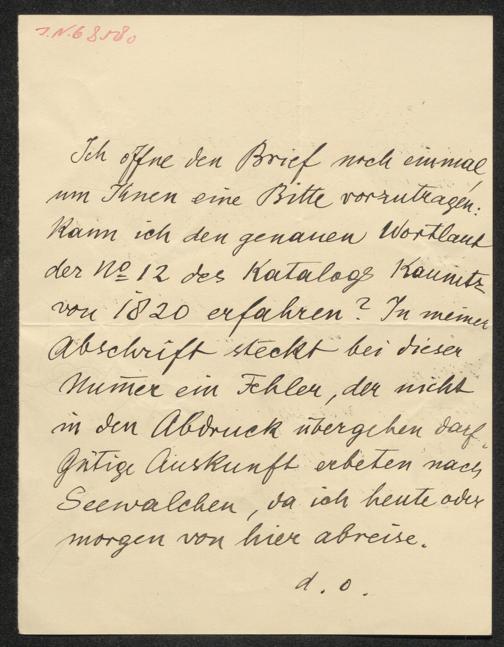 J.N. 68580
Ich öffne den Brief noch einmal,
um Ihnen eine Bitte vorzutragen:
Kann ich den genauen Wortlaut
der No 12 des Katalogs Kaunitz
von 1820 erfahren? In meiner
Abschrift steckt bei dieser
Num̅er ein Fehler, der nicht
in den Abdruck übergehen darf.
Gütige Auskunft erbeten nach
Seewalchen, da ich heute oder
morgen von hier abreise.
d. o.